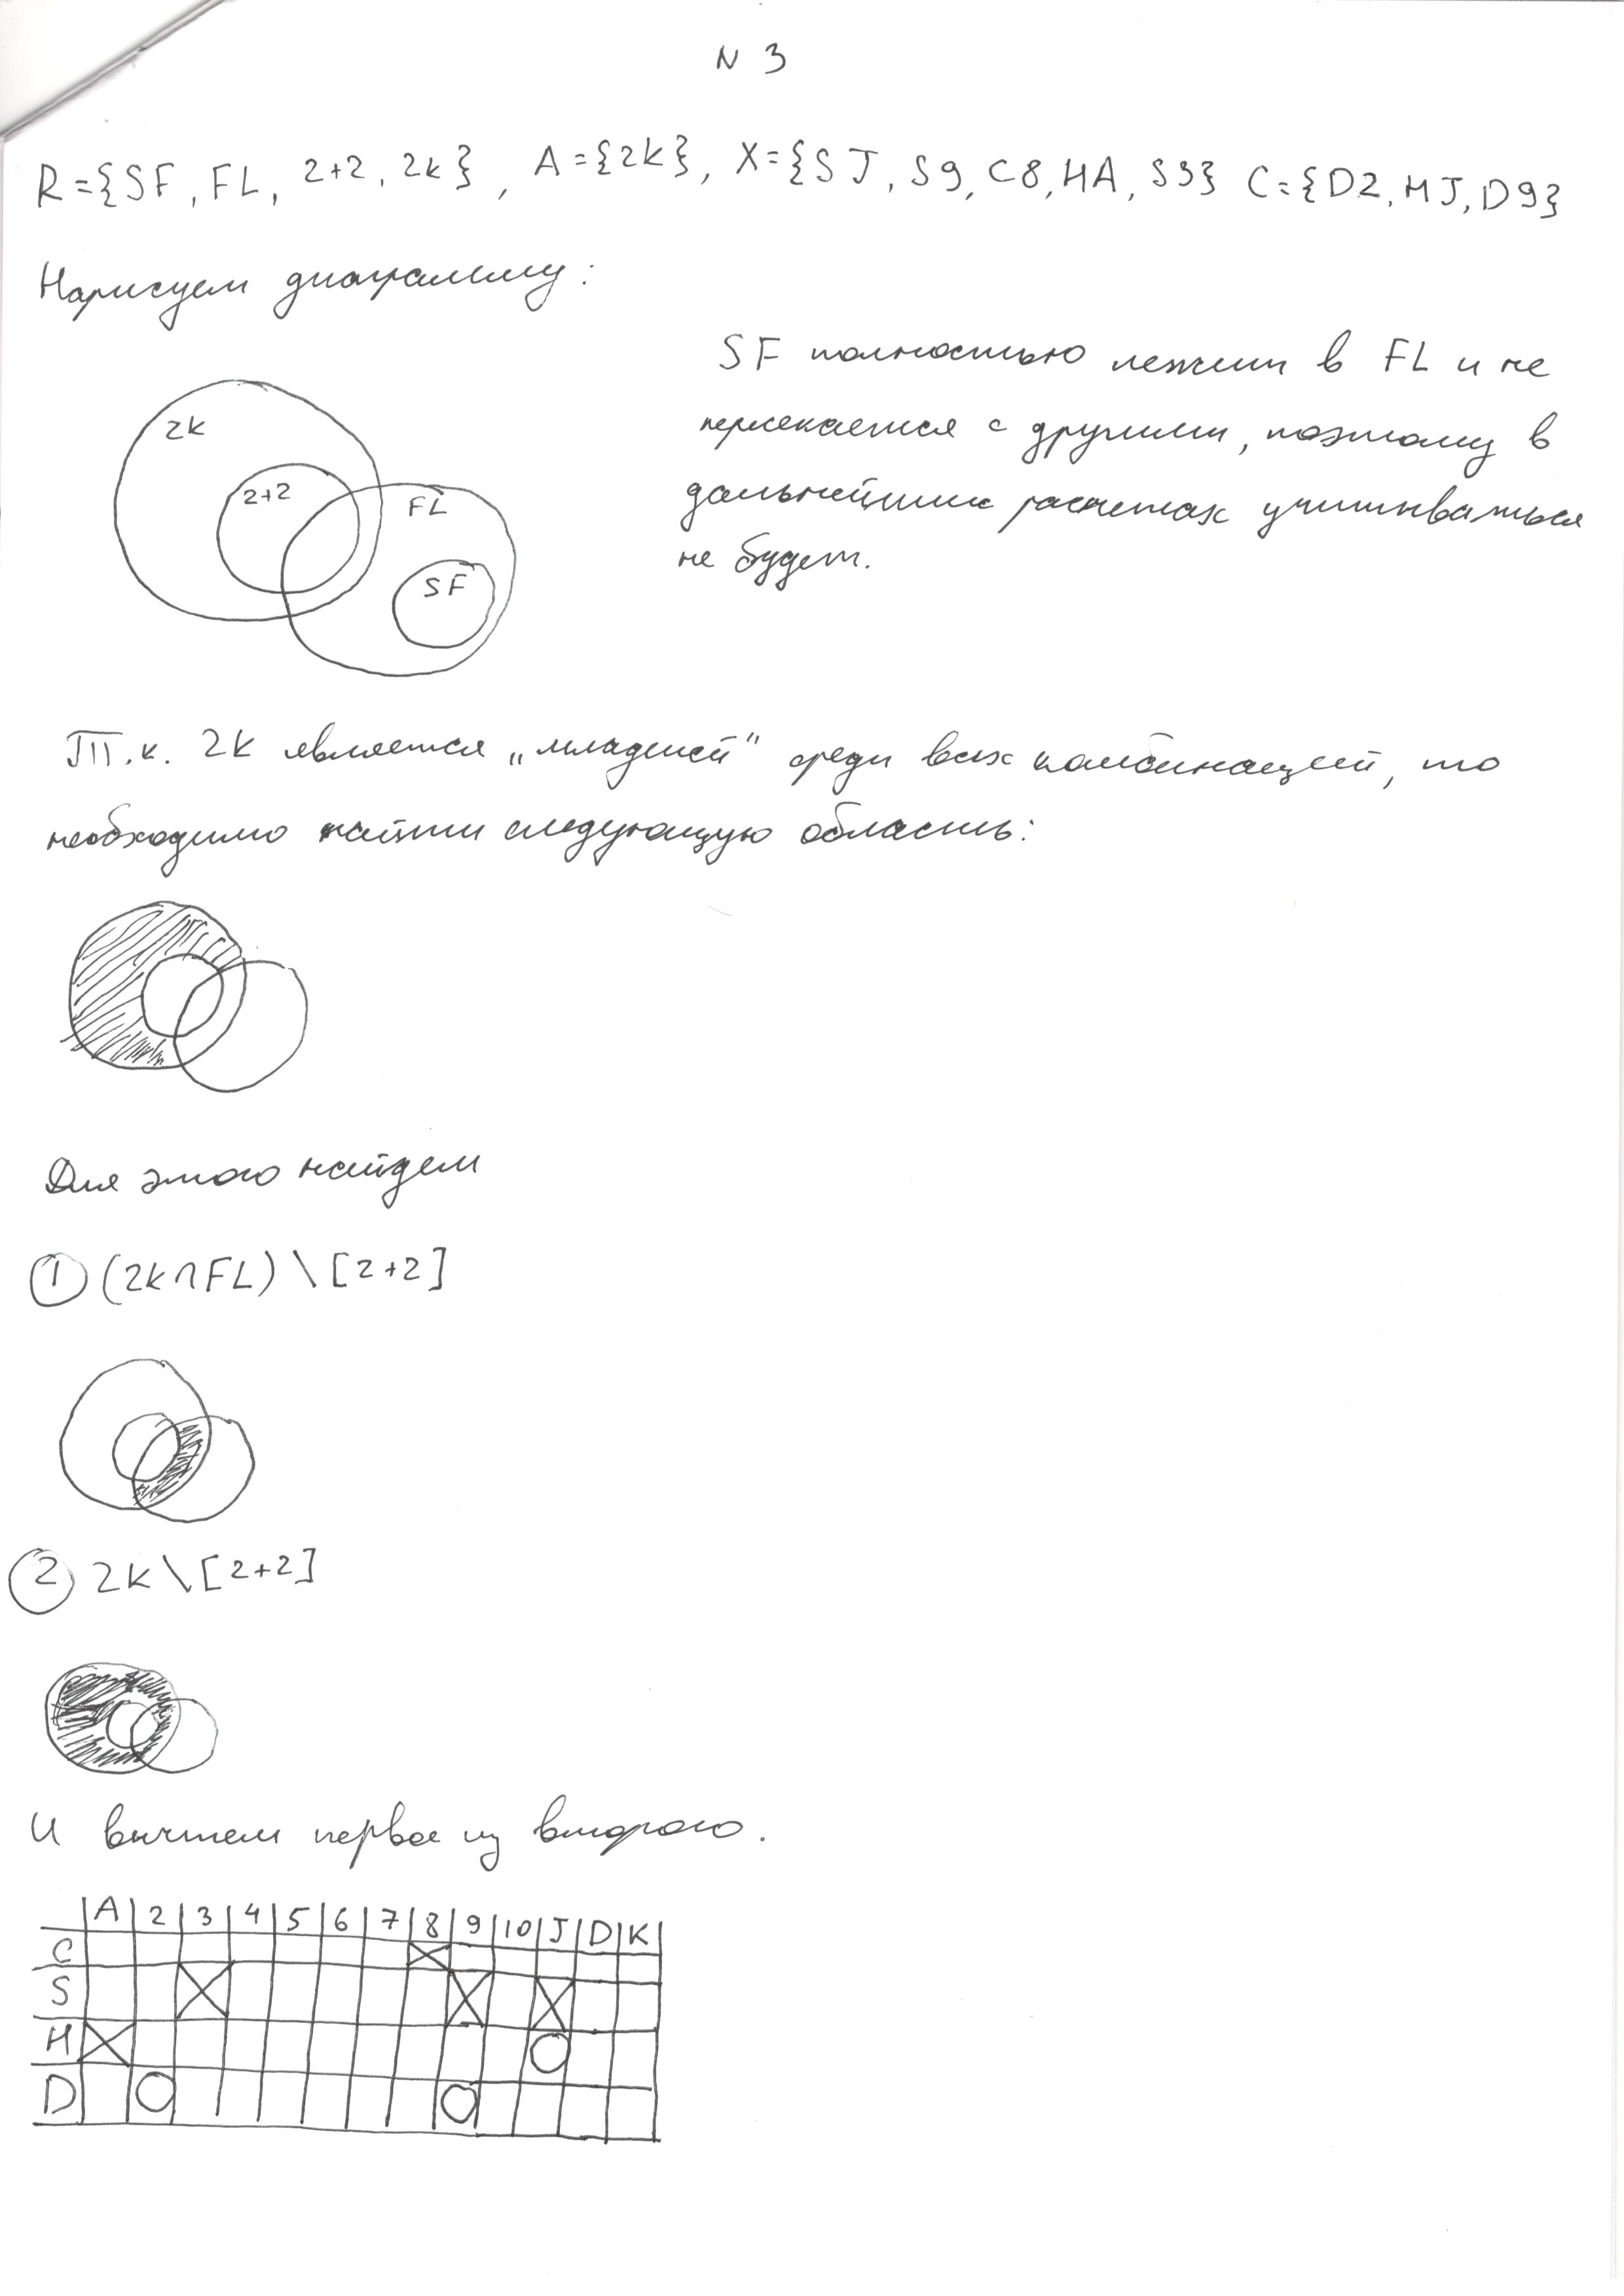 N 3
R={SF, FL, 2+2, 2k}, A={2k}, X={SJ, S9, C8, HA, S3} C={D2, HJ, D9}
Нарисуем диаграмму:
SF полностью лежит в FL и не
пересекается с другими, поэтому в
дальнейших расчетах учитываться
не будет.
2k
2+2
FL
SF
Т.к. 2k является „младшей" среди всех комбинаций, то
необходимо найти следующую область:
Для этого найдем
① (2k∩FL) \ [2+2]
② 2k \ [2+2]
И вычтем первое из второго.
A 2 3 4 5 6 7 8 9 10 J D K
C
S
H
D